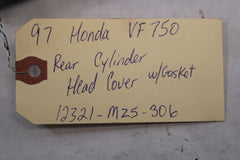 97 Honda VF750
Rear Cylinder
Head Cover w/Gasket
12321-MZ5-306